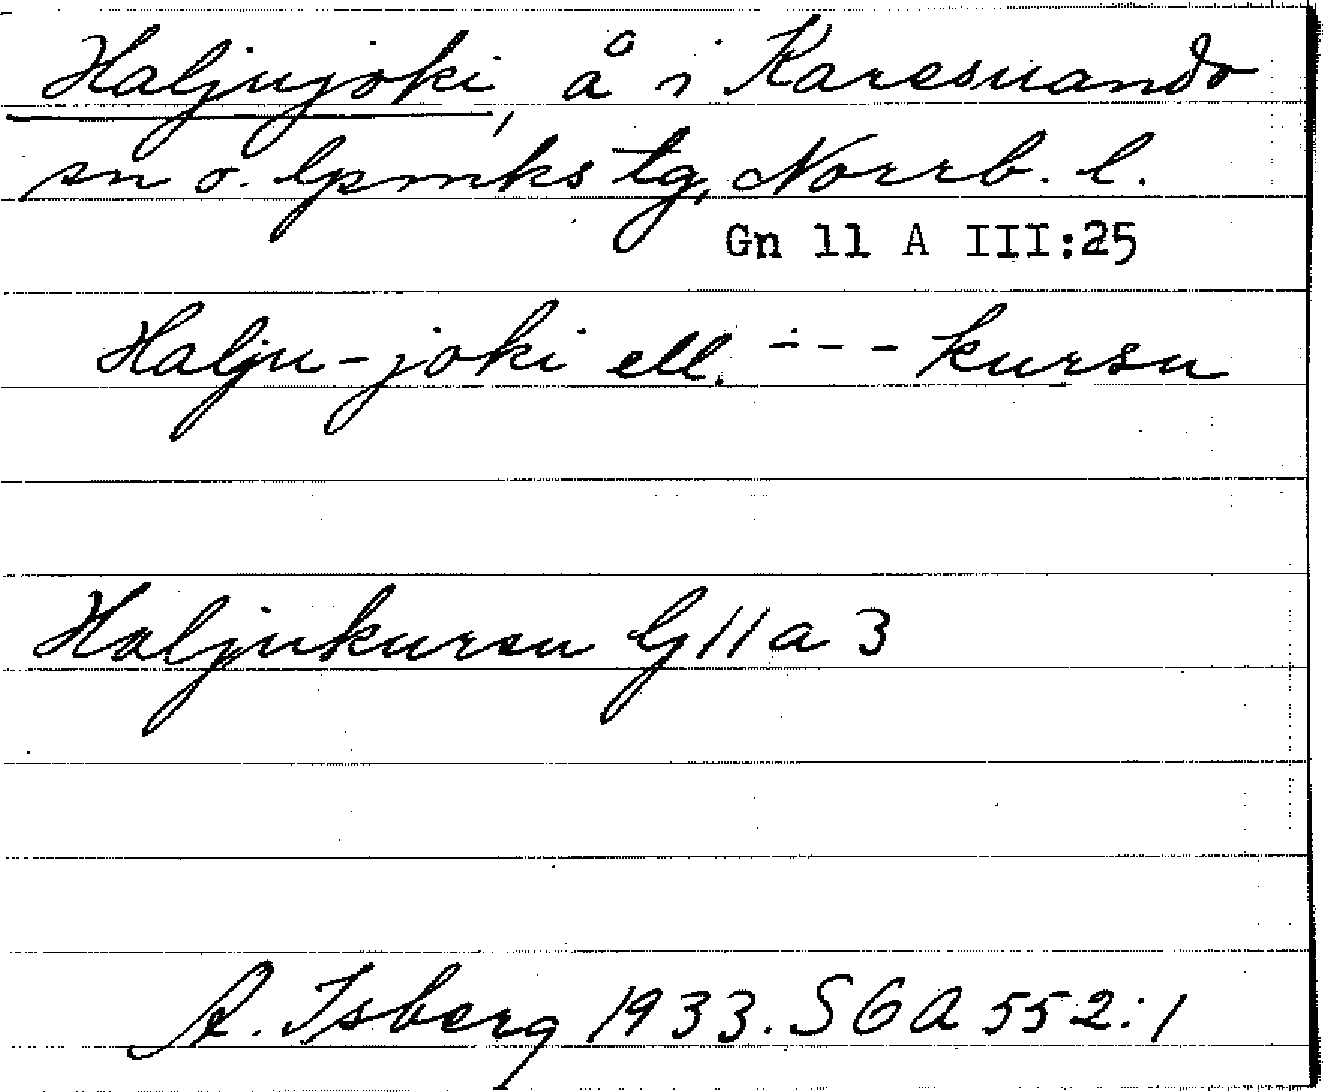 Haljujoki, å i Karesuando
sn o. lpmks tg, Norrb. l.
Gn 11 A III:25
Halju-joki ell. --- kursu
Haljukursu Gj 11 a 3
A. Isberg 1933. SGA 552:1